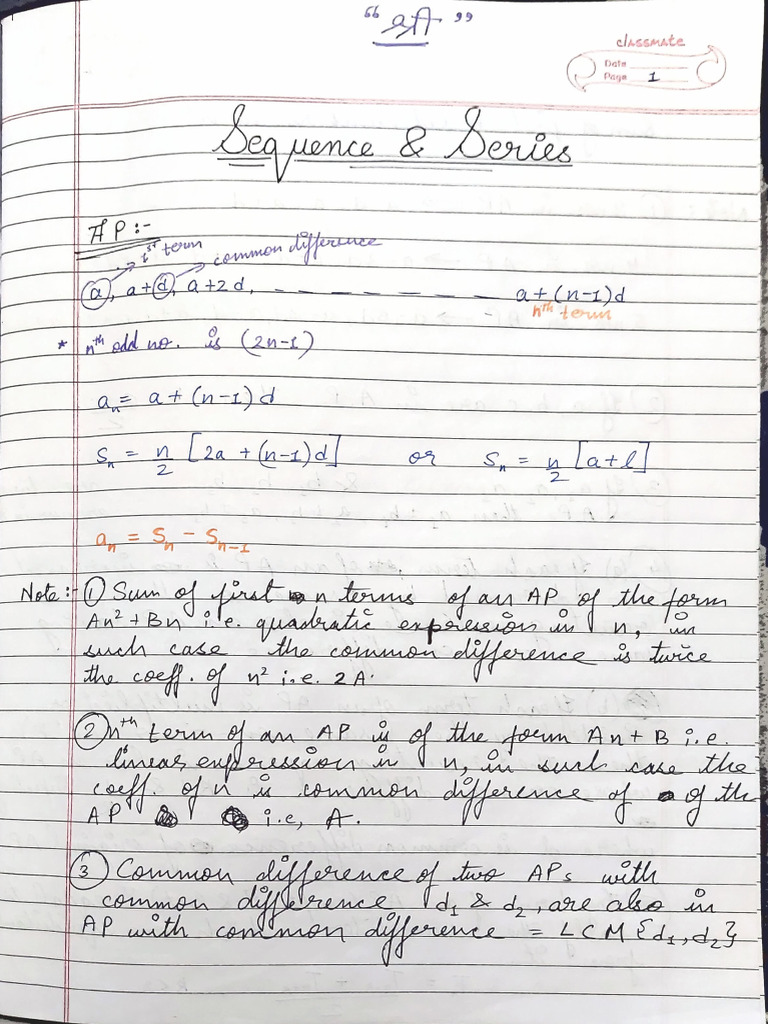 classmate
Date
Page 1
Sequence & Series
AP :-
1st term
common difference
a, a+d, a+2d, — — — — — — — — a+(n-1)d
nth term
* nth odd no. is (2n-1)
aₙ = a+(n-1)d
Sₙ = n/2 [2a+(n-1)d] or Sₙ = n/2 [a+l]
aₙ = Sₙ - Sₙ₋₁
Note:- ① Sum of first n terms of an AP of the form
An²+Bn i.e. quadratic expression in n, in
such case the common difference is twice
the coeff. of n² i.e. 2A.
② nth term of an AP is of the form An+B i.e.
linear expression in n, in such case the
coeff. of n is common difference of of the
AP i.e, A.
③ Common difference of two APs with
common difference d₁ & d₂, are also in
AP with common difference = LCM {d₁,d₂}